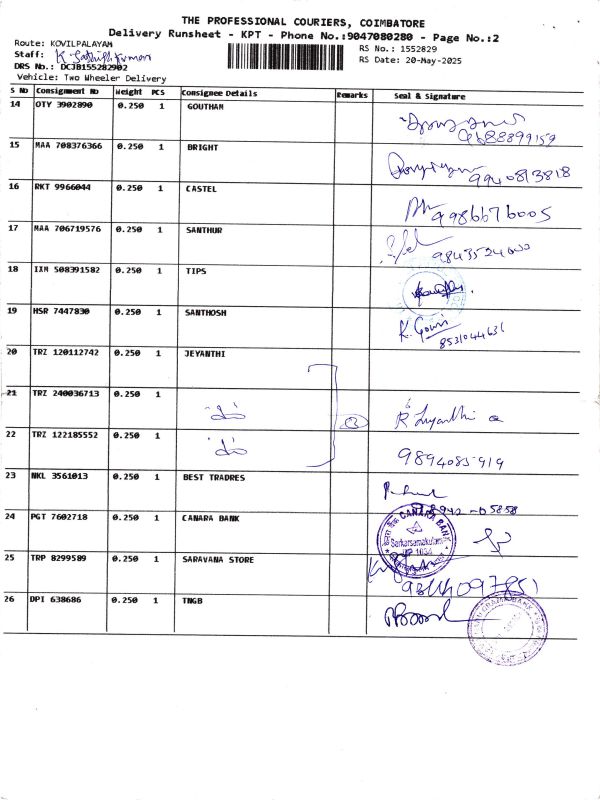 THE PROFESSIONAL COURIERS, COIMBATORE
Delivery Runsheet - KPT - Phone No.:9047080280 - Page No.:2
Route: KOVILPALAYAM
RS No.: 1552829
Staff: K Sathish Kumar
RS Date: 20-May-2025
DRS No.: DCJB155282902
Vehicle: Two Wheeler Delivery
S No Consignment No Weight PCS Consignee Details Remarks Seal & Signature
14 OTY 3902890 0.250 1 GOUTHAM
9688899159
15 MAA 708376366 0.250 1 BRIGHT
9940813818
16 RKT 9966044 0.250 1 CASTEL
9986676005
17 MAA 706719576 0.250 1 SANTHUR
9843524000
18 IXM 508391582 0.250 1 TIPS
19 HSR 7447830 0.250 1 SANTHOSH
K. Gowri
8531044631
20 TRZ 120112742 0.250 1 JEYANTHI
21 TRZ 240036713 0.250 1
3
22 TRZ 122185552 0.250 1
9894085919
23 NKL 3561013 0.250 1 BEST TRADRES
24 PGT 7602718 0.250 1 CANARA BANK
CANARA BANK
Sarkarsamakulam
DP 1034
25 TRP 8299589 0.250 1 SARAVANA STORE
26 DPI 638686 0.250 1 TNGB